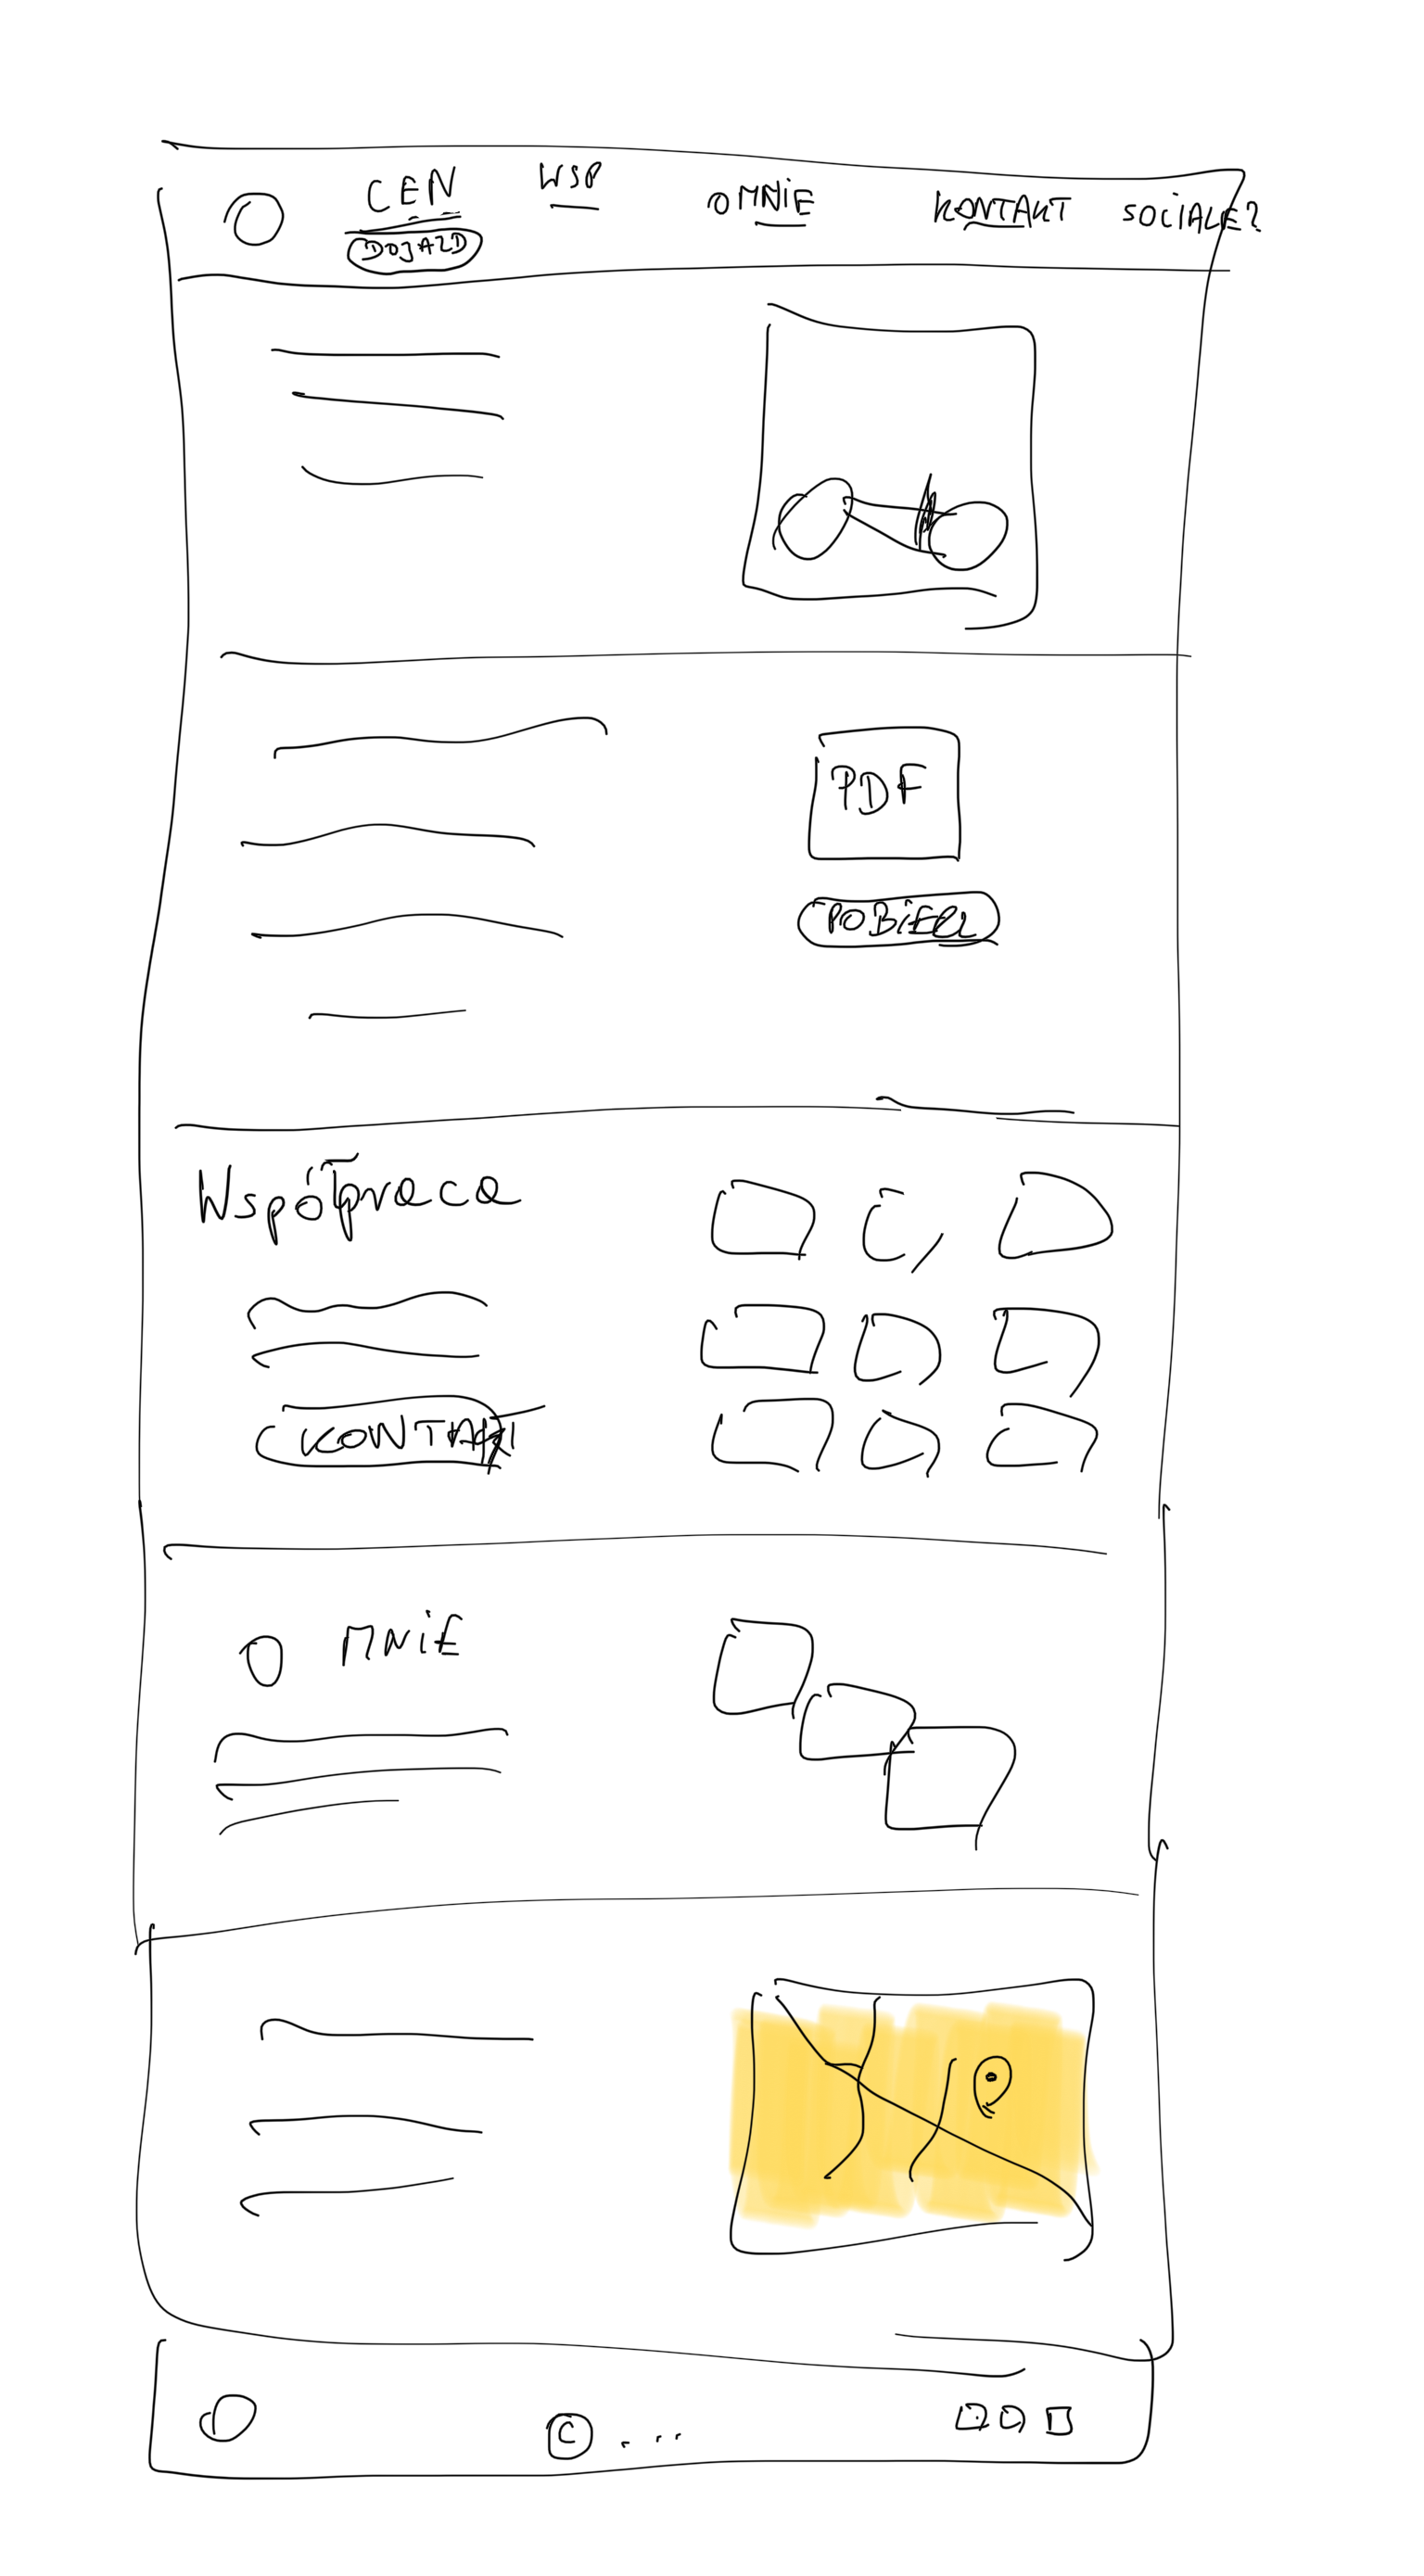 CEN WSP OMNiE KONTAKT SOCiALE?
DOJAZD
PDF
POBiERZ
Współpraca
KONTAKT
O MNiE
© ....